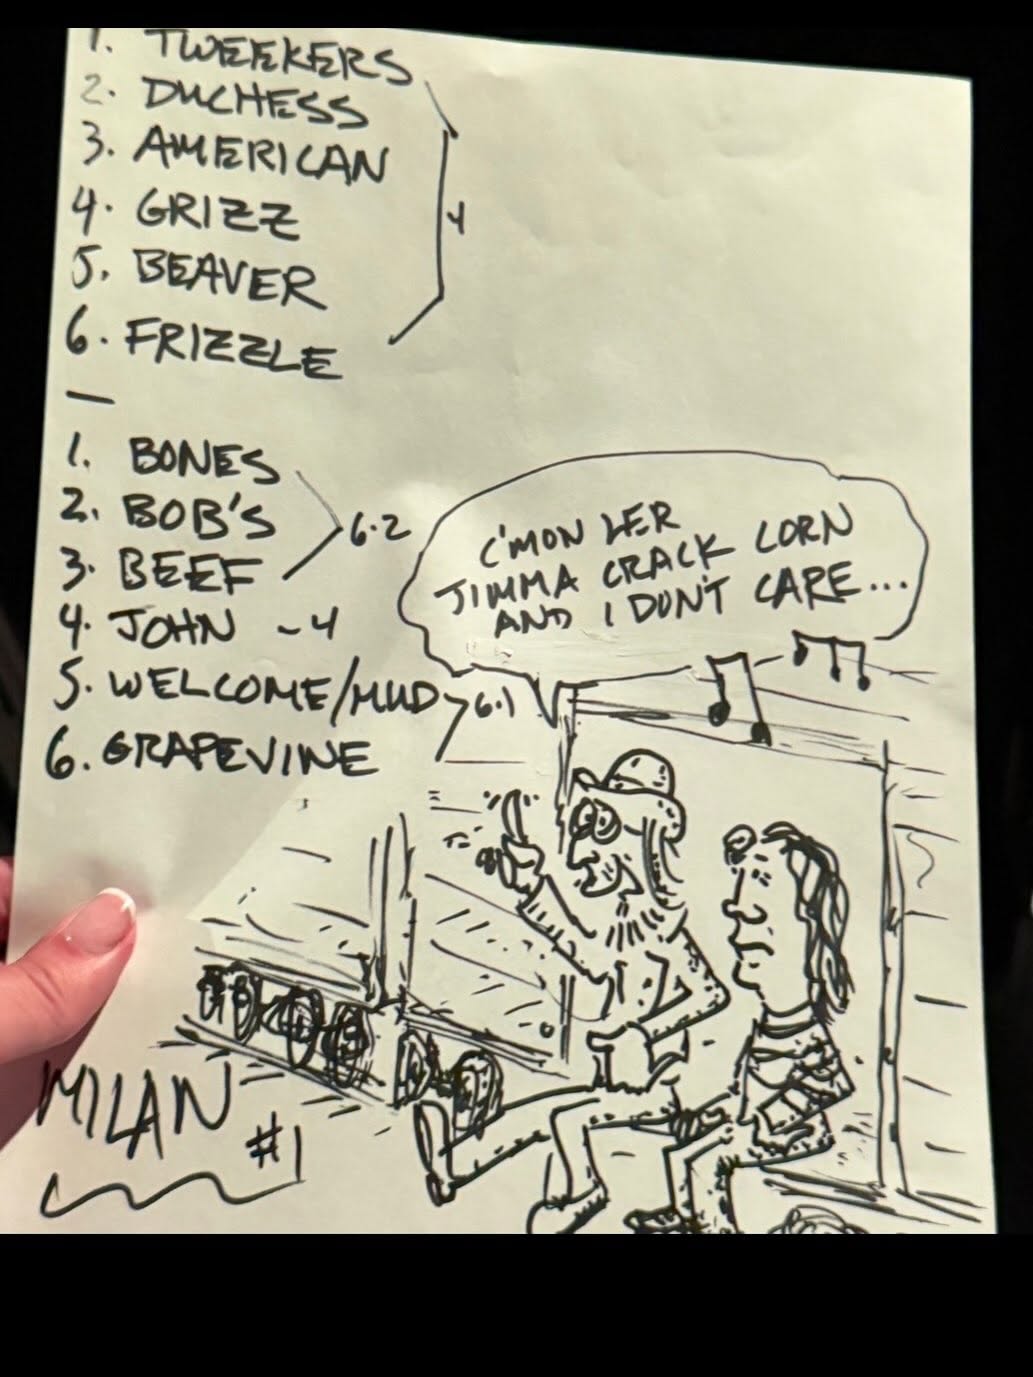 1. TWEEKERS
2. DUCHESS
3. AMERICAN
4. GRIZZ
5. BEAVER
6. FRIZZLE
4
—
1. BONES
2. BOB'S
3. BEEF
6.2
4. JOHN - 4
5. WELCOME/MUD
6. GRAPEVINE
6.1
C'MON LER
JIMMA CRACK CORN
AND I DON'T CARE...
MILAN
#1